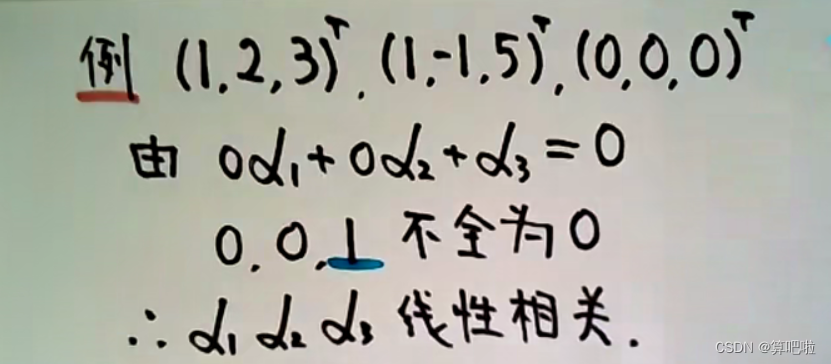 例 (1,2,3)ᵀ, (1,-1,5)ᵀ, (0,0,0)ᵀ
由 0α₁+0α₂+α₃=0
0,0,1 不全为0
∴ α₁ α₂ α₃ 线性相关.
CSDN @算吧啦